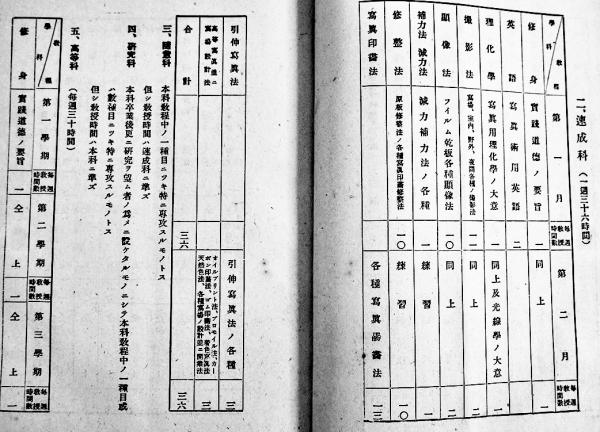 二、速成科（一週三十六時間）
學科／敎程 第一月 每週敎授時間數 第二月 每週敎授時間數
修身 實踐道德ノ要旨 一 同上 一
英語 寫眞術用英語 二
理化學 寫眞用理化學ノ大意 一 同上及光線學ノ大意 一
撮影法 寫場、室内、野外、夜間各種ノ撮影法 一〇 同上 二
顯像法 フイルム乾板各種顯像法 一〇 同上 二
補力法減力法 減力補力法ノ各種 一 練習 一
修整法 原板修整法ノ各種寫眞印畫修整法 一〇 練習 一〇
寫眞印畫法 各種寫眞印畫法 一三
引伸寫眞法 引伸寫眞法ノ各種 三
高等寫眞並ニ寫場設計法 オイルプリント法、ブロモイル法、カーボン印畫法、ゴム印畫法、着色寫眞法天然色法、各種寫場ノ設計並ニ開業法 三
合計 三六 三六
三、隨意科
本科敎程中ノ一種目ニツキ特ニ專攻スルモノトス
但シ敎授時間ハ速成科ニ準ズ
四、硏究科
本科卒業後更ニ硏究ヲ望ム者ノ爲メニ設ケタルモノニシテ本科敎程中ノ一種目或
ハ數種目ニツキ特ニ專攻スルモノトス
但シ敎授時間ハ本科ニ準ズ
五、高等科（每週三十時間）
學科／敎程 第一學期 每週敎授時間數 第二學期 每週敎授時間數 第三學期 每週敎授時間數
修身 實踐道德ノ要旨 一 仝上 一 仝上 一